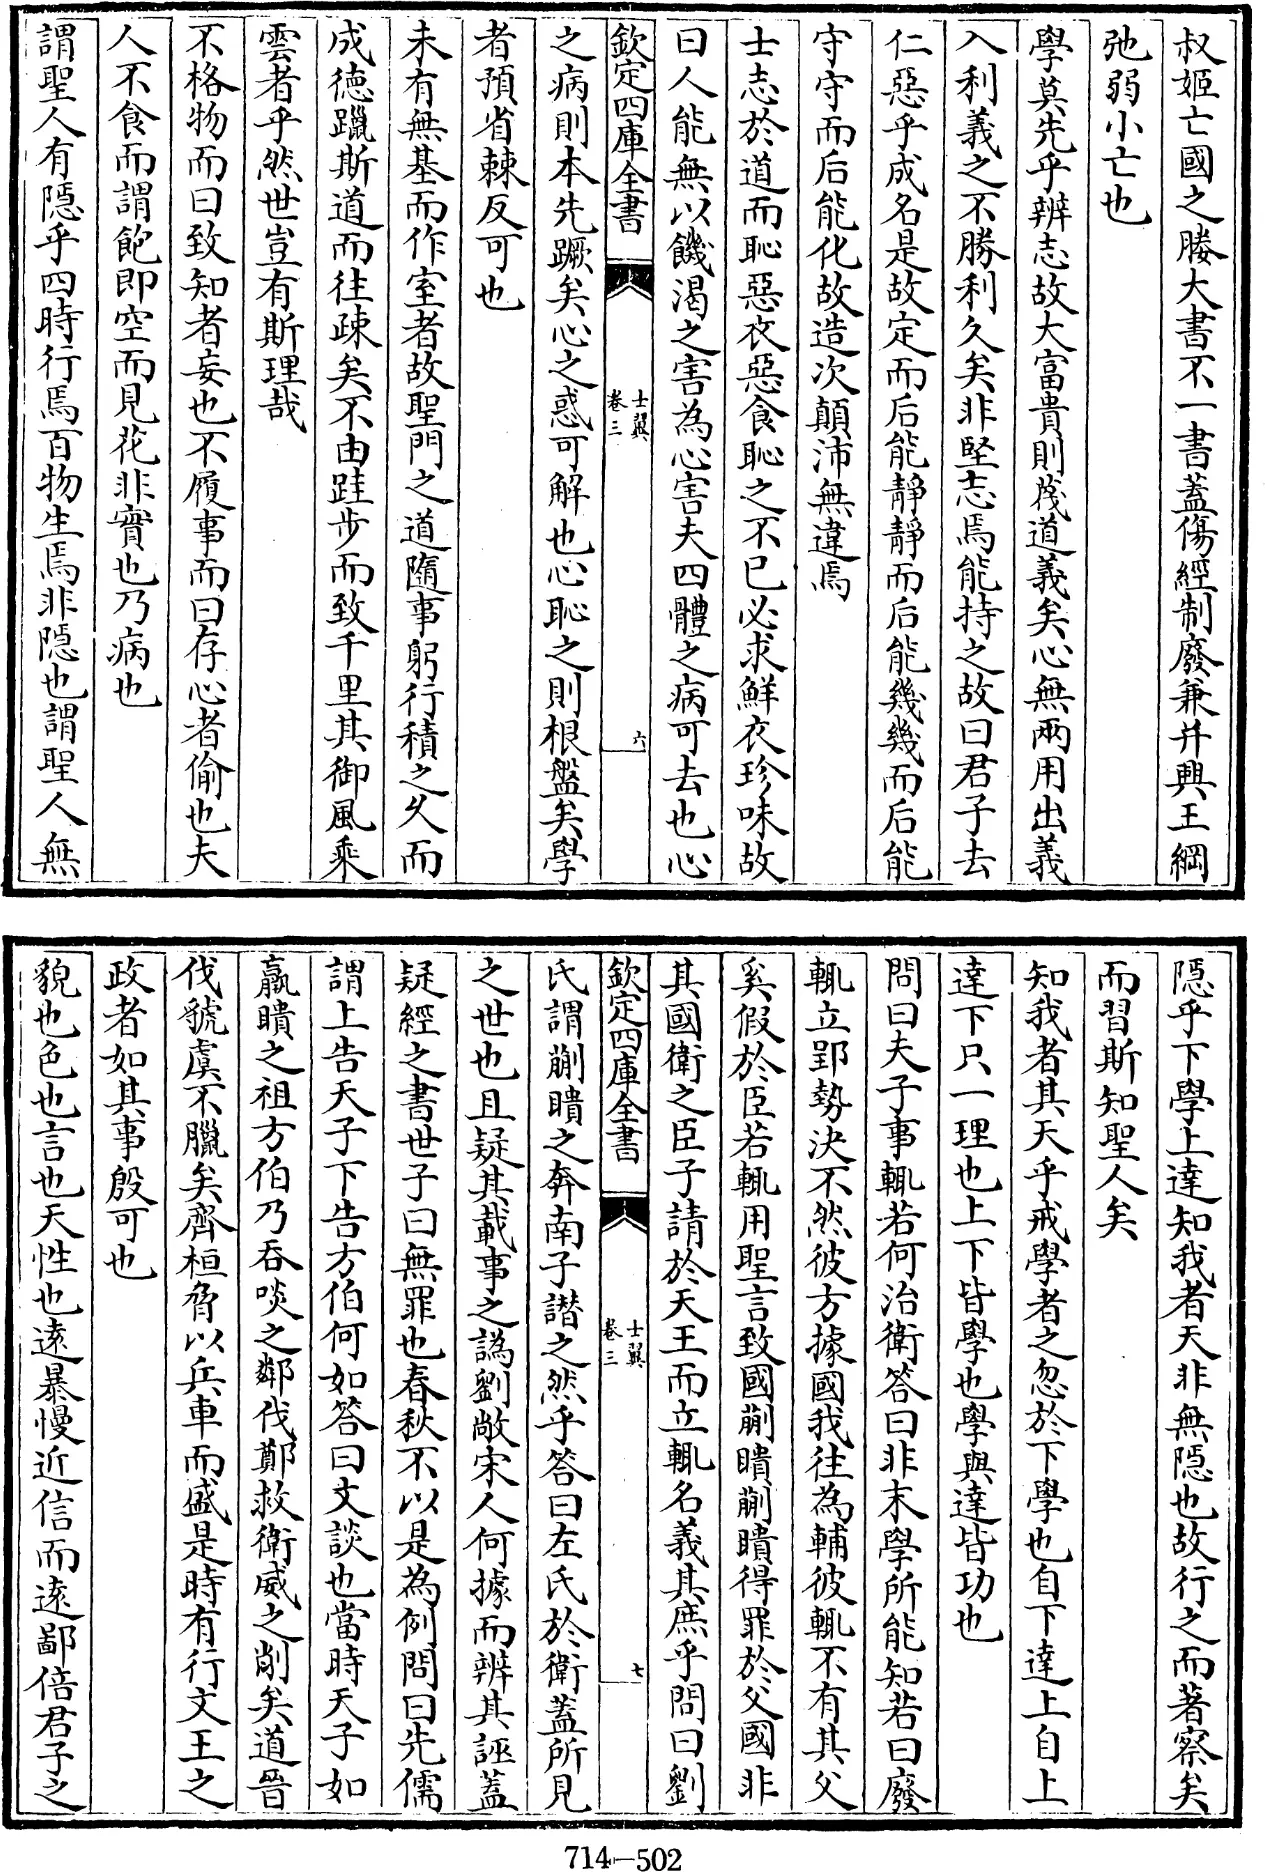 叔姬亡國之媵大書不一書蓋傷經制廢兼并興王綱
弛弱小亡也
學莫先乎辨志故大富貴則蔑道義矣心無兩用出義
入利義之不勝利久矣非堅志焉能持之故曰君子去
仁惡乎成名是故定而后能靜靜而后能幾幾而后能
守守而后能化故造次顛沛無違焉
士志於道而恥惡衣惡食恥之不已必求鮮衣珍味故
曰人能無以饑渴之害為心害夫四體之病可去也心
欽定四庫全書
士翼
卷三
六
之病則本先蹶矣心之惑可解也心恥之則根盤矣學
者預省棘反可也
未有無基而作室者故聖門之道隨事躬行積之久而
成德躐斯道而往疎矣不由跬步而致千里其御風乘
雲者乎然世豈有斯理哉
不格物而曰致知者妄也不履事而曰存心者偷也夫
人不食而謂飽即空而見花非實也乃病也
謂聖人有隱乎四時行焉百物生焉非隱也謂聖人無
隱乎下學上達知我者天非無隱也故行之而著察矣
而習斯知聖人矣
知我者其天乎戒學者之忽於下學也自下達上自上
達下只一理也上下皆學也學與達皆功也
問曰夫子事輒若何治衛答曰非末學所能知若曰廢
輒立郢勢決不然彼方據國我往為輔彼輒不有其父
奚假於臣若輒用聖言致國蒯聵蒯聵得罪於父國非
其國衛之臣子請於天王而立輒名義其庶乎問曰劉
欽定四庫全書
士翼
卷三
七
氏謂蒯聵之奔南子譖之然乎答曰左氏於衛蓋所見
之世也且疑其載事之譌劉敞宋人何據而辨其誣蓋
疑經之書世子曰無罪也春秋不以是為例問曰先儒
謂上告天子下告方伯何如答曰文談也當時天子如
贏聵之祖方伯乃吞啖之鄰伐鄭救衛威之削矣道晉
伐虢虞不臘矣齊桓脅以兵車而盛是時有行文王之
政者如其事殷可也
貌也色也言也天性也遠暴慢近信而遠鄙倍君子之
714-502